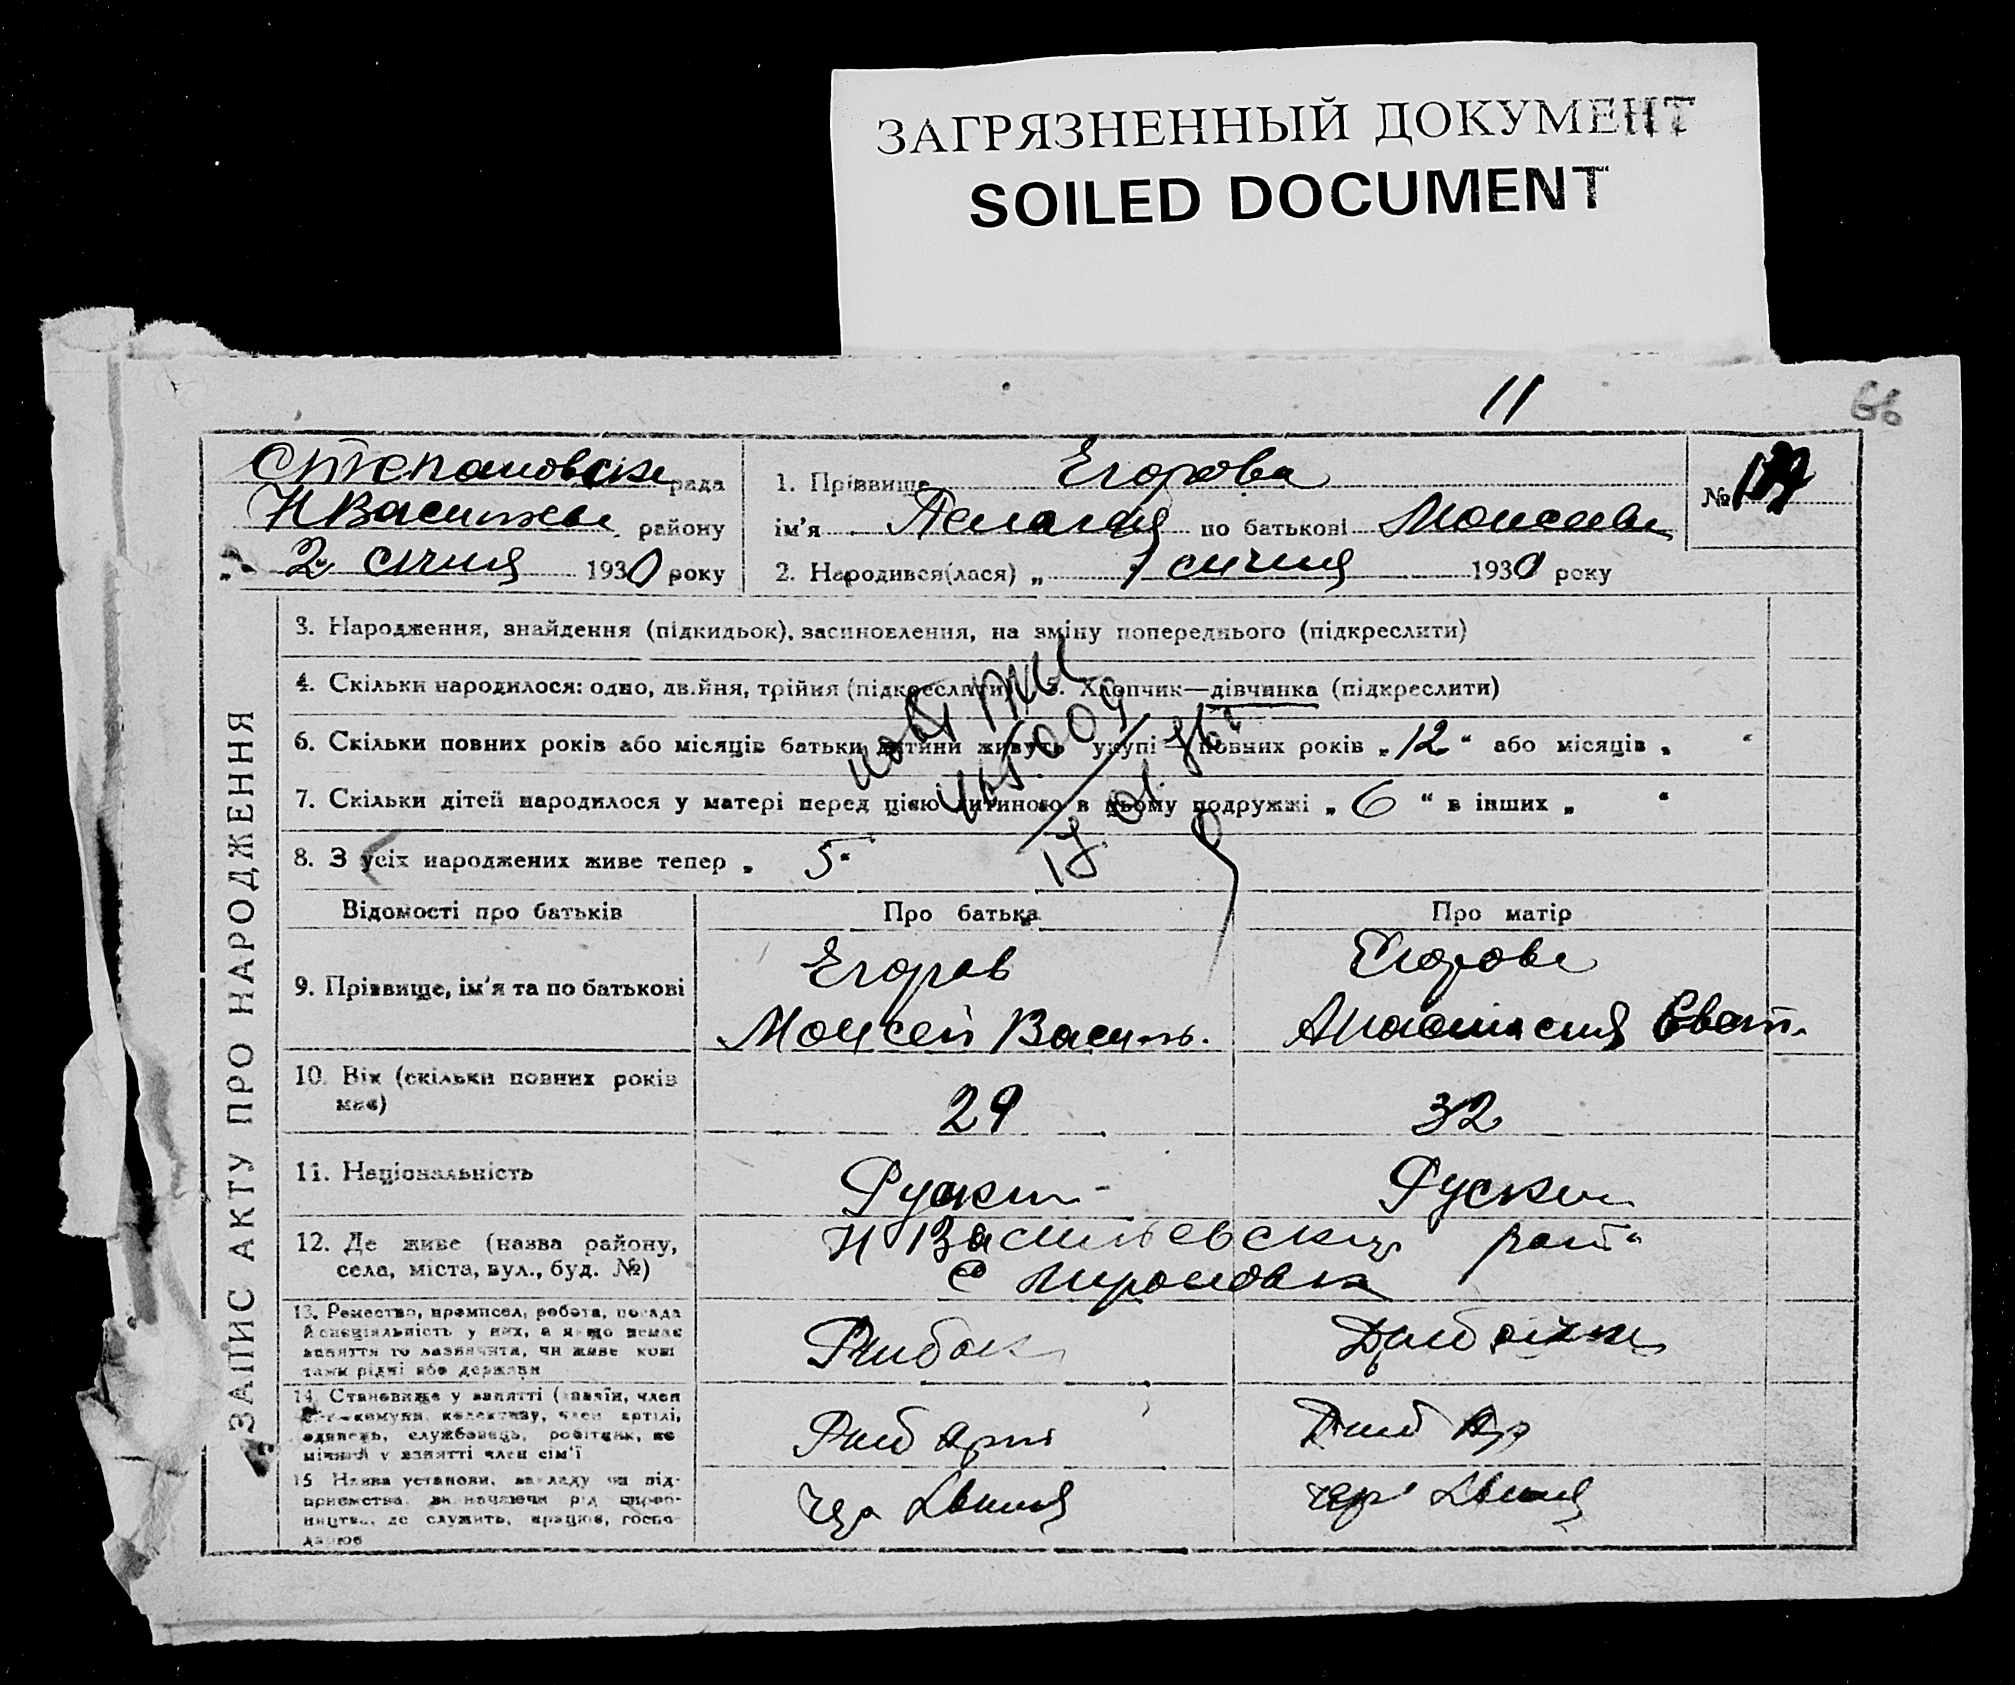 ЗАГРЯЗНЕННЫЙ ДОКУМЕНТ
SOILED DOCUMENT
11
66
Степановська рада
Н Васильев району
2 січня 1930 року
1. Прізвище Егорова
ім'я Пелагея по батькові Моисеевн
2. Народився(лася) „ 1 сичня 1930 року
№
ЗАПИС АКТУ ПРО НАРОДЖЕННЯ
3. Народження, знайдення (підкидьок), засиновлення, на зміну попереднього (підкреслити)
4. Скільки народилося: одно, двійня, трійня (підкреслити) 5. Хлопчик—дівчинка (підкреслити)
6. Скільки повних років або місяців батьки дитини живуть укупі — повних років „ 12 “ або місяців „ “
7. Скільки дітей народилося у матері перед цією дитиною в цьому подружжі „ 6 “ в інших „ “
8. З усіх народжених живе тепер „ 5 “
Відомості про батьків
Про батька
Про матір
9. Прізвище, ім'я та по батькові
Егоров
Моисей Василь.
Егорова
Анастасия
10. Вік (скільки повних років має)
29
32
11. Національність
Руский
Руская
12. Де живе (назва району, села, міста, вул., буд. №)
Н Васильевский
с
13. Ремество, промисел, робота, посада й спеціяльність у них, а якщо немає заняття то зазначити, чи живе кошта́ми рідні або держави
Рибак
14. Становище у занятті (хазяїн, член комуни, колективу, член артілі, одинець, службовець, робітник, помічний у занятті член сім'ї
Риб Арт
Риб Ар
15 Назва установи, закладу чи підприємства, зазначаючи рід виробництва, де служить, працює, господарює